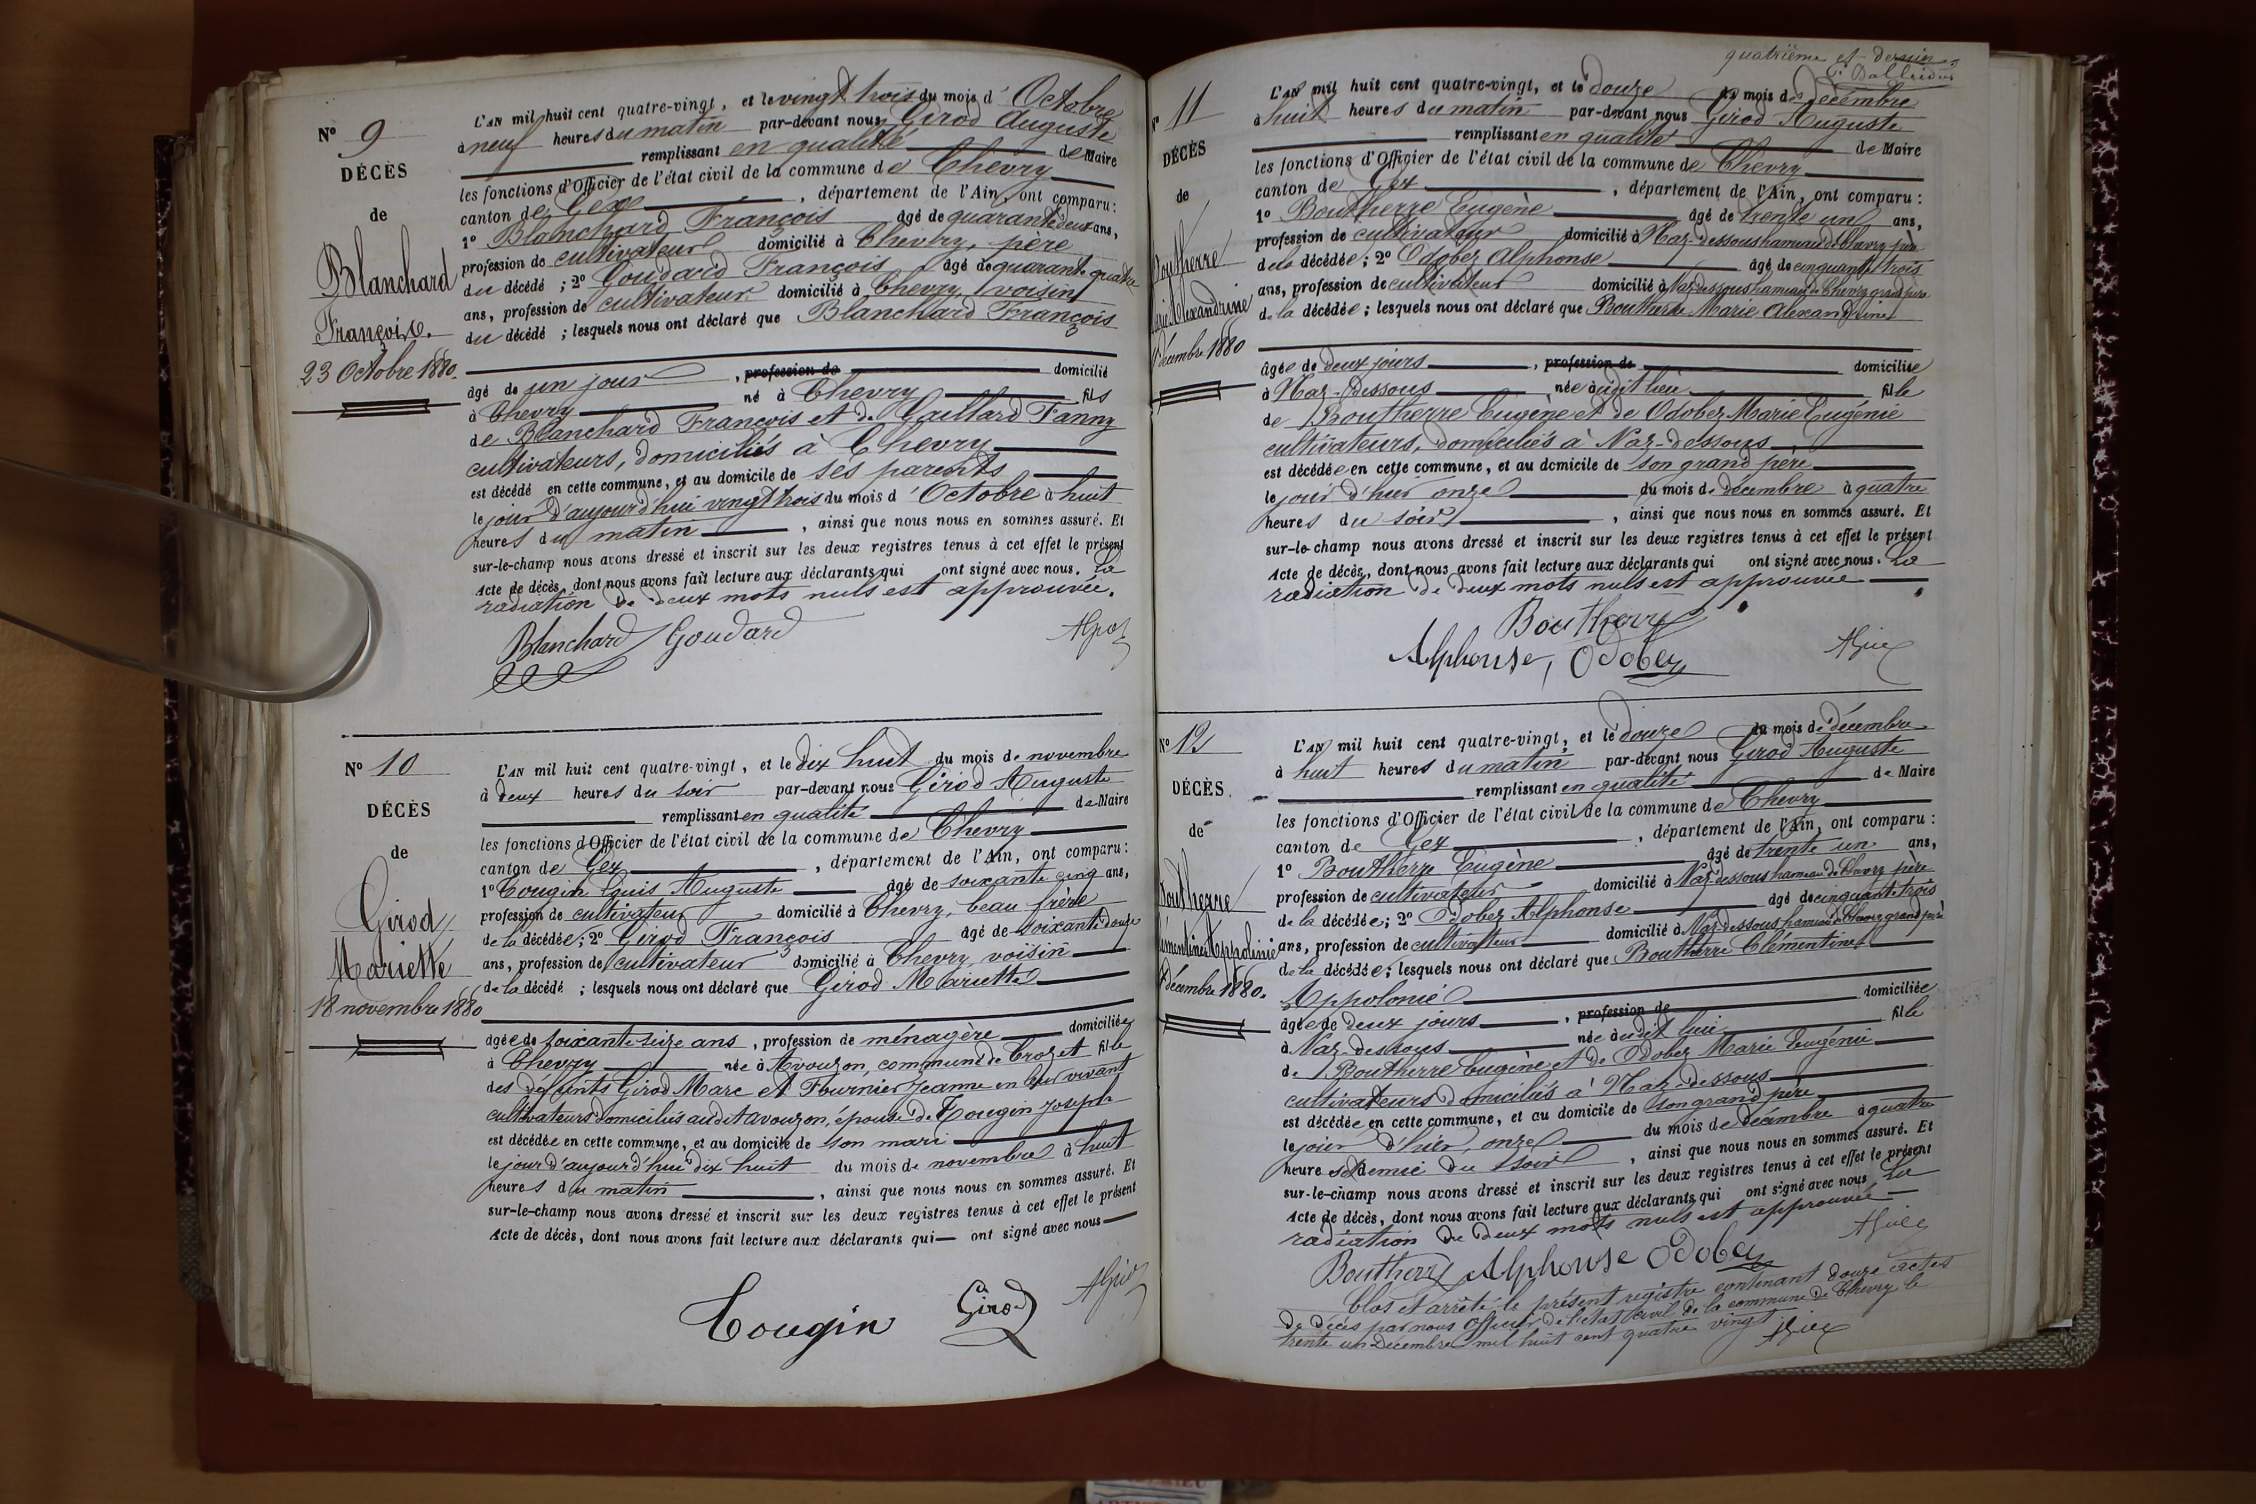 N° 9
DÉCÈS
de
Blanchard
François.
23 Octobre 1880.
L'AN mil huit cent quatre-vingt, et le vingt trois du mois d'Octobre
à neuf heures du matin par-devant nous Girod Auguste
remplissant en qualité de Maire
les fonctions d'Officier de l'état civil de la commune de Chevry
canton de Gex, département de l'Ain, ont comparu:
1° Blanchard François âgé de quarante deux ans,
profession de cultivateur domicilié à Chevry, père
du décédé ; 2° Goudard François âgé de quarante quatre
ans, profession de cultivateur domicilié à Chevry, voisin
du décédé ; lesquels nous ont déclaré que Blanchard François
âgé de un jour, profession de domicilié
à Chevry né à Chevry fils
de Blanchard François et de Gaillard Fanny
cultivateurs, domiciliés à Chevry
est décédé en cette commune, et au domicile de ses parents
le jour d'aujourd'hui vingt trois du mois d'Octobre à huit
heures du matin, ainsi que nous nous en sommes assuré. Et
sur-le-champ nous avons dressé et inscrit sur les deux registres tenus à cet effet le présent
Acte de décès, dont nous avons fait lecture aux déclarants qui ont signé avec nous. La
radiation de deux mots nuls est approuvée.
Blanchard Goudard
N° 10
DÉCÈS
de
Girod
Mariette
18 novembre 1880
L'AN mil huit cent quatre-vingt, et le dix huit du mois de novembre
à deux heures du soir par-devant nous Girod Auguste
remplissant en qualité de Maire
les fonctions d'Officier de l'état civil de la commune de Chevry
canton de Gex, département de l'Ain, ont comparu:
1° Tougin Louis Auguste âgé de soixante cinq ans,
profession de cultivateur domicilié à Chevry, beau frère
de la décédée; 2° Girod François âgé de soixante douze
ans, profession de cultivateur domicilié à Chevry, voisin
de la décédé ; lesquels nous ont déclaré que Girod Mariette
âgée de soixante seize ans, profession de ménagère domiciliée
à Chevry née à Avouzon, commune de Crozet fille
des défunts Girod Marc et Fournier Jeanne en leur vivant
cultivateurs domiciliés audit Avouzon, épouse de Tougin Joseph
est décédée en cette commune, et au domicile de son mari
le jour d'aujourd'hui dix huit du mois de novembre à huit
heures du matin, ainsi que nous nous en sommes assuré. Et
sur-le-champ nous avons dressé et inscrit sur les deux registres tenus à cet effet le présent
Acte de décès, dont nous avons fait lecture aux déclarants qui ont signé avec nous
Tougin Girod
quatrième et dernier
N° 11
DÉCÈS
de
Boutherre
Marie Alexandrine
décembre 1880
L'AN mil huit cent quatre-vingt, et le douze du mois de décembre
à huit heures du matin par-devant nous Girod Auguste
remplissant en qualité de Maire
les fonctions d'Officier de l'état civil de la commune de Chevry
canton de Gex, département de l'Ain, ont comparu:
1° Boutherre Eugène âgé de trente un ans,
profession de cultivateur domicilié à Naz-dessous hameau de Chevry père
de la décédée; 2° Odobez Alphonse âgé de cinquante trois
ans, profession de cultivateur domicilié à Naz-dessous hameau de Chevry grand père
de la décédée; lesquels nous ont déclaré que Boutherre Marie Alexandrine
âgée de deux jours, profession de domiciliée
à Naz-dessous née audit lieu fille
de Boutherre Eugène et de Odobez Marie Eugénie
cultivateurs, domiciliés à Naz-dessous
est décédée en cette commune, et au domicile de son grand père
le jour d'hier onze du mois de décembre à quatre
heures du soir, ainsi que nous nous en sommes assuré. Et
sur-le-champ nous avons dressé et inscrit sur les deux registres tenus à cet effet le présent
Acte de décès, dont nous avons fait lecture aux déclarants qui ont signé avec nous. La
radiation de deux mots nuls est approuvée
Boutherre
Alphonse Odobez
N° 12
DÉCÈS
de
Boutherre
Clémentine Appolonie
décembre 1880.
L'AN mil huit cent quatre-vingt, et le douze du mois de décembre
à huit heures du matin par-devant nous Girod Auguste
remplissant en qualité de Maire
les fonctions d'Officier de l'état civil de la commune de Chevry
canton de Gex, département de l'Ain, ont comparu:
1° Boutherre Eugène âgé de trente un ans,
profession de cultivateur domicilié à Naz-dessous hameau de Chevry père
de la décédée; 2° Odobez Alphonse âgé de cinquante trois
ans, profession de cultivateur domicilié à Naz-dessous hameau de Chevry grand père
de la décédée; lesquels nous ont déclaré que Boutherre Clémentine
Appolonie
âgée de deux jours, profession de domiciliée
à Naz-dessous née audit lieu fille
de Boutherre Eugène et de Odobez Marie Eugénie
cultivateurs domiciliés à Naz-dessous
est décédée en cette commune, et au domicile de son grand père
le jour d'hier, onze du mois de décembre à quatre
heure et demie du soir, ainsi que nous nous en sommes assuré. Et
sur-le-champ nous avons dressé et inscrit sur les deux registres tenus à cet effet le présent
Acte de décès, dont nous avons fait lecture aux déclarants qui ont signé avec nous La
radiation de deux mots nuls est approuvée
Boutherre Alphonse Odobez
Clos et arrêté le présent registre contenant douze actes
de décès par nous Officier de l'état civil de la commune de Chevry le
trente un décembre mil huit cent quatre vingt